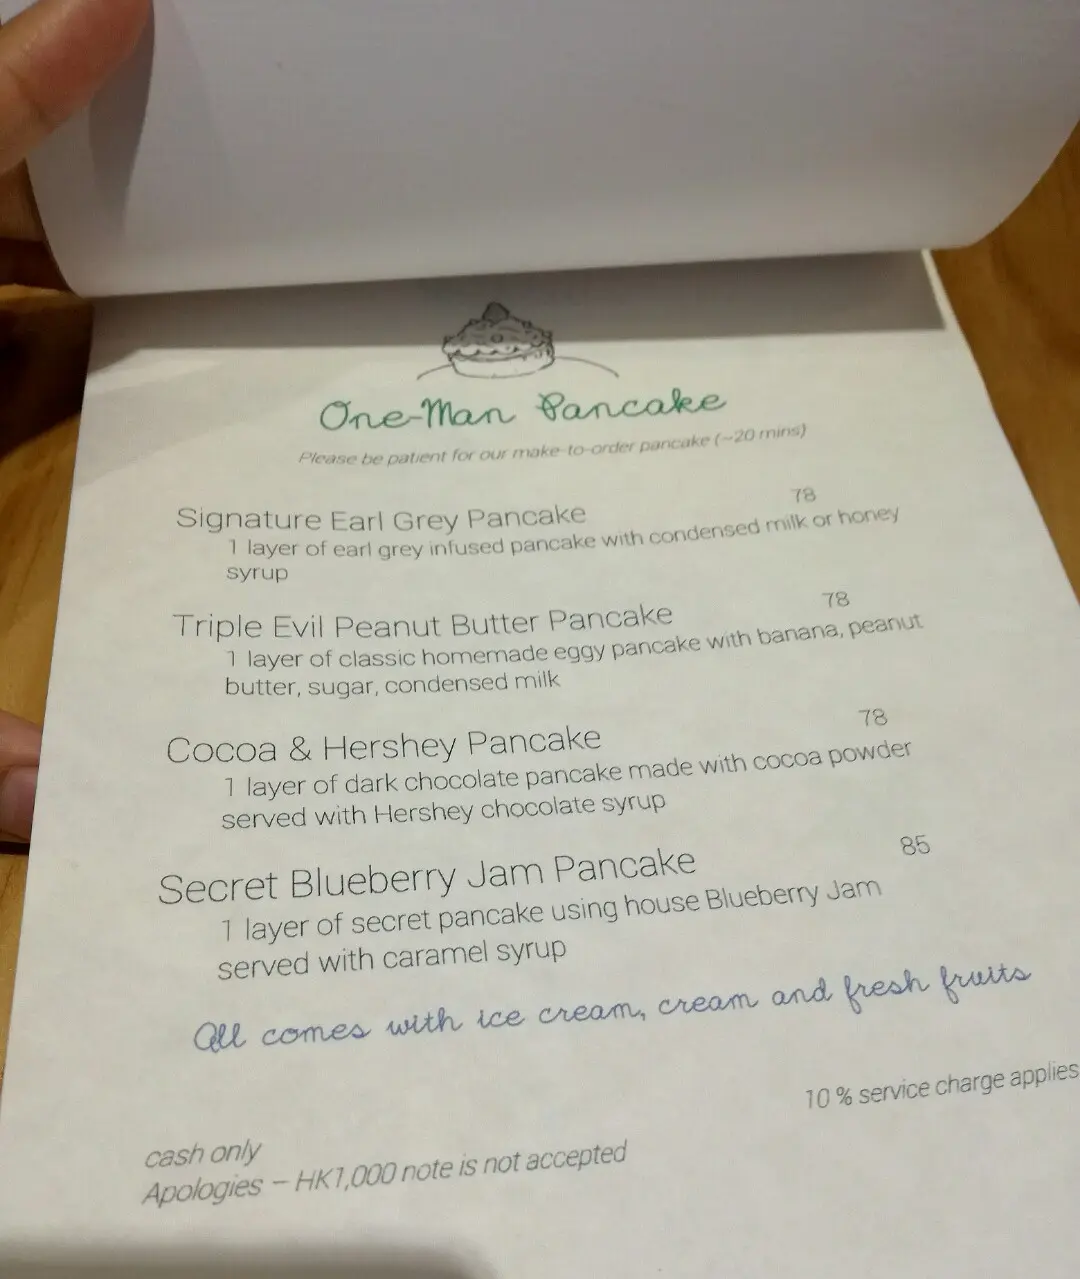 One-Man Pancake
Please be patient for our make-to-order pancake (~20 mins)
Signature Earl Grey Pancake 78
1 layer of earl grey infused pancake with condensed milk or honey
syrup
Triple Evil Peanut Butter Pancake 78
1 layer of classic homemade eggy pancake with banana, peanut
butter, sugar, condensed milk
Cocoa & Hershey Pancake 78
1 layer of dark chocolate pancake made with cocoa powder
served with Hershey chocolate syrup
Secret Blueberry Jam Pancake 85
1 layer of secret pancake using house Blueberry Jam
served with caramel syrup
All comes with ice cream, cream and fresh fruits
10 % service charge applies
cash only
Apologies – HK1,000 note is not accepted